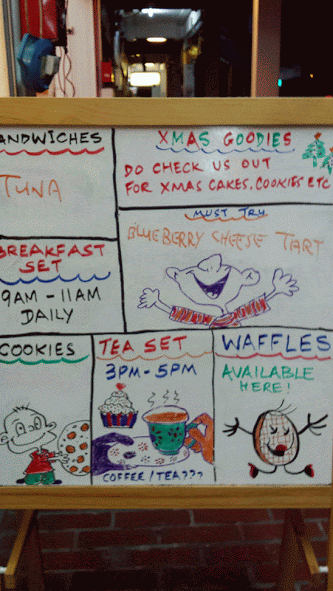 ANDWICHES
TUNA
XMAS GOODIES
DO CHECK US OUT
FOR XMAS CAKES, COOKIES ETC
MUST TRY
BLUEBERRY CHEESE TART
BREAKFAST
SET
9AM - 11AM
DAILY
COOKIES
TEA SET
3PM - 5PM
COFFEE/TEA???
WAFFLES
AVAILABLE
HERE!